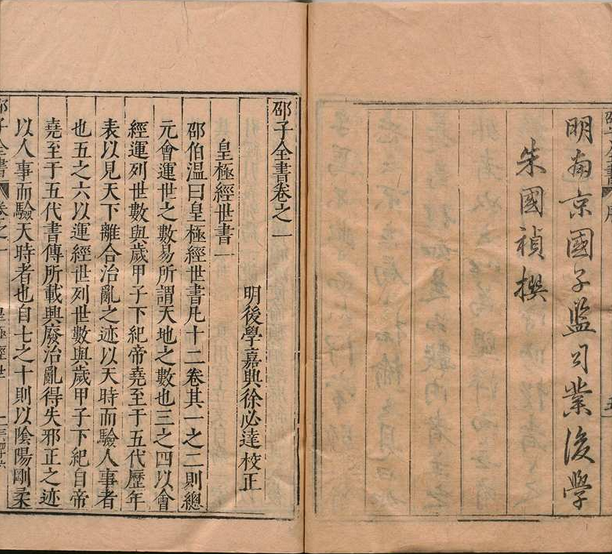 明南京國子監司業後學
朱國禎撰
邵子全書卷之一
明後學嘉興徐必達校正
皇極經世書一
邵伯温曰皇極經世書凡十二卷其一之二則總
元會運世之數易所謂天地之數也三之四以會
經運列世數與歲甲子下紀帝堯至于五代歷年
表以見天下離合治亂之迹以天時而驗人事者
也五之六以運經世列世數與歲甲子下紀自帝
堯至于五代書傳所載興廢治亂得失邪正之迹
以人事而驗天時者也自七之十則以陰陽剛柔
邵子全書 卷之一